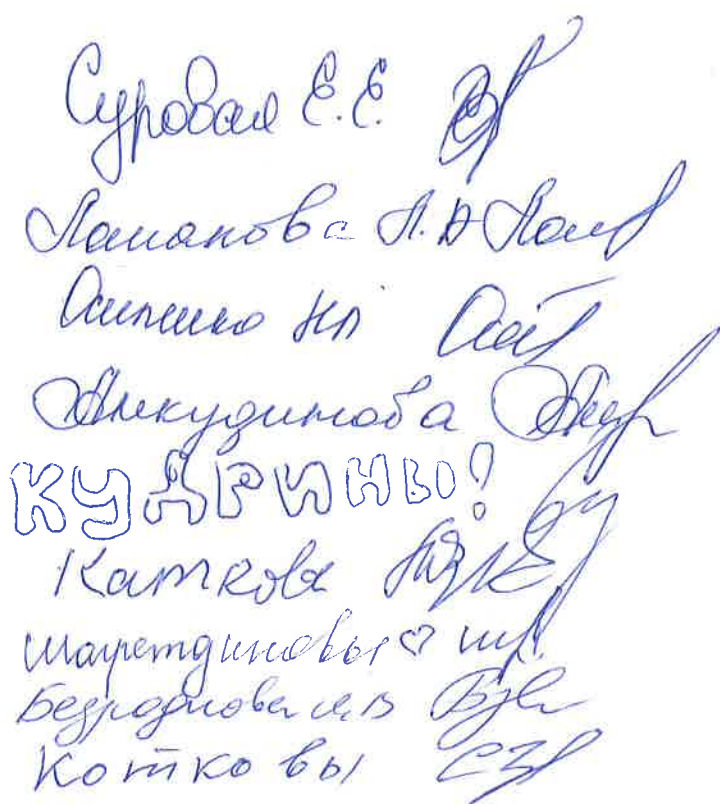 Суровая Е.Е.
Ломанова Л.А
Осипенко НП
Анкудинова
КУДРИНЫ!
Каткова
Шаретдиновы ♡
Безроднова И.В
Котковы